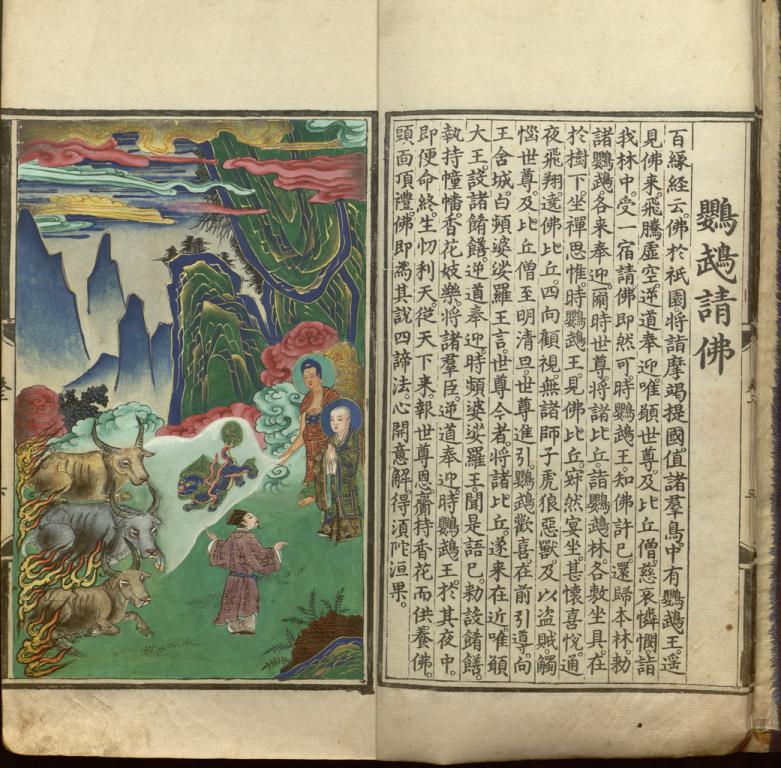 鸚鵡請佛
百緣經云。佛於祇園。將詣摩竭提國。値諸羣鳥。中有鸚鵡王。遥
見佛來。飛騰虛空。逆道奉迎。唯願世尊。及比丘僧。慈哀憐憫。詣
我林中。受一宿請。佛即然可。時鸚鵡王。知佛許已。還歸本林。勅
諸鸚鵡。各來奉迎。爾時世尊。將諸比丘。詣鸚鵡林。各敷坐具。在
於樹下。坐禪思惟。時鸚鵡王。見佛比丘。寂然宴坐。甚懷喜悅。通
夜飛翔。遶佛比丘。四向顧視。無諸師子虎狼惡獸。及以盜賊。觸
惱世尊。及比丘僧。至明清旦。世尊進引。鸚鵡歡喜。在前引導。向
王舍城。白頻婆娑羅王言。世尊今者。將諸比丘。遂來在近。唯願
大王。設諸餚饍。逆道奉迎。時頻婆娑羅王。聞是語已。勅設餚饍。
執持幢幡。香花妓樂。將諸羣臣。逆道奉迎。時鸚鵡王。於其夜中。
即便命終。生忉利天。從天下來。報世尊恩。齎持香花。而供養佛。
頭面頂禮。佛即為其。說四諦法。心開意解。得須陀洹果。